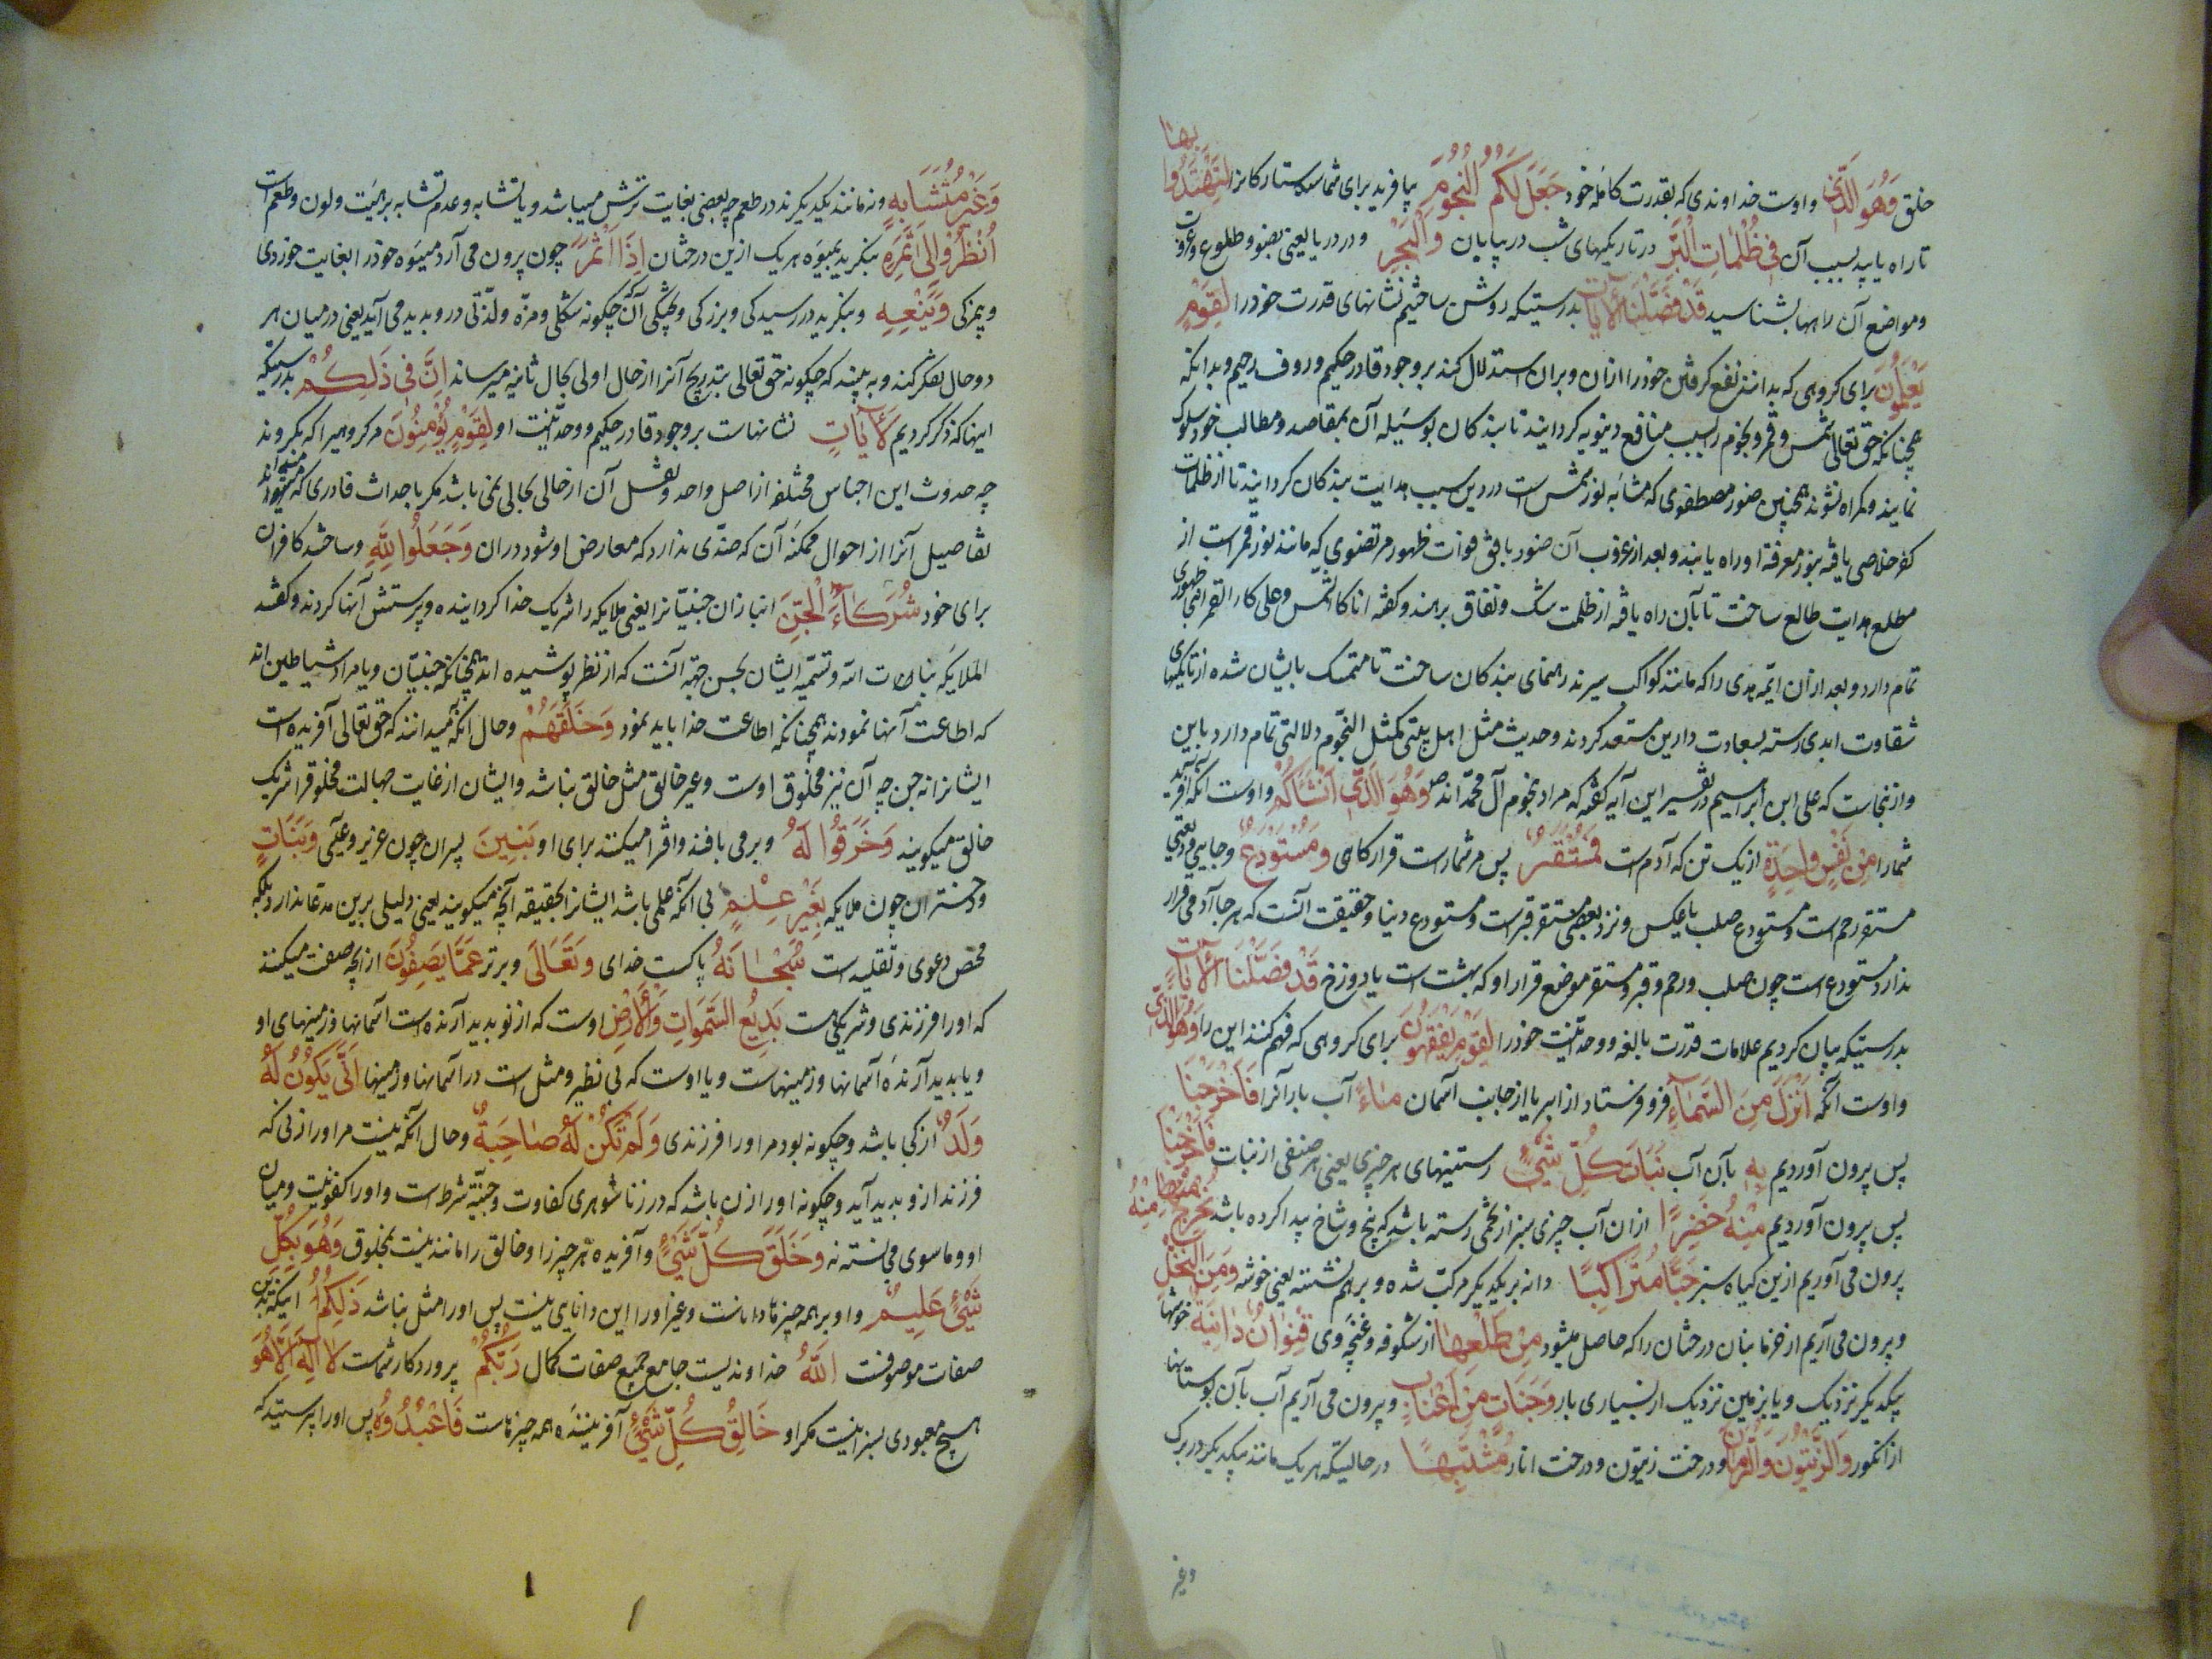 خلق وَهُوَ الَّذِی و اوست خداوندی که بقدرت کامله خود جَعَلَ لَکُمُ النُّجُومَ بیافرید برای شما ستارکانرا لِتَهْتَدُوا بِهَا
تا راه یابید بسبب آن فِی ظُلُمَاتِ الْبَرِّ در تاریکیهای شب در بیابان وَالْبَحْرِ و در دریا یعنی بضو و طلوع و غروب
و مواضع آن راهها بشناسید قَدْ فَصَّلْنَا الْآیَاتِ بدرستیکه روشن ساختیم نشانهای قدرت خود را لِقَوْمٍ
یَعْلَمُونَ برای کروهی که بدانند نفع کرفتن خود را ازان و بران استدلال کنند بر وجود قادر حکیم و روف رحیم و بدانکه
همچنانکه حق تعالی شمس و قمر و نجوم را سبب منافع دنیویه کردانید تا بندکان بوسیله آن بمقاصد و مطالب خود سلوک
نمایند و کمراه نشوند همچنین ضور مصطفوی که مشابه نور شمس است در دین سبب هدایت بندکان کردانید تا از ظلمات
کفر خلاصی یافته بنور معرفة او راه یابند و بعد از غروب آن ضور بافق فوات ظهور مرتضوی که مانند نور قمر است از
مطلع هدایت طالع ساخت تا بآن راه یافته از ظلمت شک و نفاق برهند و کفته انا کالشمس و علی کالقمر اینجا ظهوری
تمام دارد و بعد ازان ایمه هدی را که مانند کواکب سیرند رهنمای بندکان ساخت تا متمسک بایشان شده از تاریکیهای
شقاوت ابدی رسته بسعادت دارین مستعد کردند و حدیث مثل اهل بیتی کمثل النجوم دلالتی تمام دارد باین
و ازینجاست که علی ابن ابراهیم در تفسیر این آیه کفته که مراد بنجوم آل محمد اند ص وَهُوَ الَّذِی اَنْشَاَکُمْ و اوست آنکه آفرید
شما را مِنْ نَفْسٍ وَاحِدَةٍ از یک تن که آدم است فَمُسْتَقَرٌّ پس مر شما راست قرارکاهی وَمُسْتَوْدَعٌ و جای ودیعتی
مستقر رحم است و مستودع صلب یا بعکس و نزد بعضی مستقر قبر است و مستودع دنیا و حقیقت آنست که هر جا آدمی قرار
ندارد مستودع است چون صلب و رحم و قبر و مستقر موضع قرار او که بهشت است یا دوزخ قَدْ فَصَّلْنَا الْآیَاتِ
بدرستیکه بیان کردیم علامات قدرت بالغه و وحدانیت خود را لِقَوْمٍ یَفْقَهُونَ برای کروهی که فهم کنند این را وَهُوَ الَّذِی
و اوست آنکه اَنْزَلَ مِنَ السَّمَاءِ فرو فرستاد از ابر یا از جانب آسمان مَاءً آب بارانرا فَاَخْرَجْنَا
پس بیرون آوردیم بِهِ بآن آب نَبَاتَ کُلِّ شَیْءٍ رستنیهای هر چیزی یعنی هر صنفی از نبات فَاَخْرَجْنَا
پس بیرون آوردیم مِنْهُ خَضِرًا ازان آب چیزی سبز از تخمی رسته باشد که بیخ و شاخ پیدا کرده باشد نُخْرِجُ مِنْهُ
بیرون می آوریم ازین کیاه سبز حَبًّا مُتَرَاکِبًا دانه بر یکدیکر مرکب شده و برهم نشسته یعنی خوشه وَمِنَ النَّخْلِ
و بیرون می آریم از خرما بنان درختان را که حاصل میشود مِنْ طَلْعِهَا از شکوفه و غنچه وی قِنْوَانٌ دَانِیَةٌ خوشها
بیکدیکر نزدیک و یا بزمین نزدیک از بسیاری بار وَجَنَّاتٍ مِنْ اَعْنَابٍ و بیرون می آریم آب بآن بوستانها
از انکور وَالزَّیْتُونَ وَالرُّمَّانَ و درخت زیتون و درخت انار مُشْتَبِهًا در حالتیکه هر یک مانند بیکدیکرند در برک
وغیر
وَغَیْرَ مُتَشَابِهٍ و نه مانند بیکدیکرند در طعم چه بعضی بغایت ترش میباشد و یا تشابه و عدم تشابه بر هیئت و لون و طعم است
اُنْظُرُوا اِلَی ثَمَرِهِ بنکرید بمیوه هر یک ازین درختان اِذَا اَثْمَرَ چون بیرون می آرد میوه خود را بغایت خوردی
و بیمزکی وَیَنْعِهِ و بنکرید در رسیدکی و بزرکی و پختکی آن که چکونه شکلی و مزه و لذتی در و بدید می آید یعنی در میان هر
دو حال تفکر کنند و به بینند که چکونه حق تعالی بتدریج آنرا از حال اولی بحال ثانیه میرساند اِنَّ فِی ذَلِکُمْ بدرستیکه
اینها که ذکر کردیم لَآیَاتٍ نشانهاست بر وجود قادر حکیم و وحدانیت او لِقَوْمٍ یُؤْمِنُونَ مر کروهیرا که بکروند
چه حدوث این اجناس مختلفه از اصل واحد و نقل آن از حالی بحالی نمی باشد مکر باحداث قادری که میداند
تفاصیل آنرا از احوال ممکنه آن که ضدی ندارد که معارض او شود دران وَجَعَلُوا لِلّٰهِ و ساختند کافران
برای خود شُرَکَاءَ الْجِنَّ انبازان جنیانرا یعنی ملایکه را شریک خدا کردانیده و پرستش آنها کردند و کفتند
الملایکه بنات الله و تسمیه ایشان بجن جهة آنست که از نظر پوشیده اند همچنانکه جنیان و یا مراد شیاطین اند
که اطاعت آنها نمودند همچنانکه اطاعت خدا باید نمود وَخَلَقَهُمْ و حال آنکه میدانند که حق تعالی آفریده است
ایشانرا نه جن چه آن نیز مخلوق اوست و غیر خالق مثل خالق نباشد و ایشان از غایت جهالت مخلوقرا شریک
خالق میکویند وَخَرَقُوا لَهُ و برمی بافند و افترا میکنند برای او بَنِینَ پسران چون عزیر و عیسی وَبَنَاتٍ
و دختران چون ملایکه بِغَیْرِ عِلْمٍ بی آنکه علمی باشد ایشانرا بحقیقه آنچه میکویند یعنی دلیلی برین مدعا ندارند بلکه
محض دعوی و تقلید است سُبْحَانَهُ پاکست خدای وَتَعَالَی و برتر عَمَّا یَصِفُونَ ازانچه صفت میکنند
که او را فرزندی و شریکی هست بَدِیعُ السَّمَوَاتِ وَالْاَرْضِ اوست که از نو بدید آرنده است آسمانها و زمینهای او
و یا بدید آرنده آسمانها و زمینهاست و یا اوست که بی نظیر و مثل است در آسمانها و زمینها اَنَّی یَکُونُ لَهُ
وَلَدٌ از کی باشد و چکونه بود مر او را فرزندی وَلَمْ تَکُنْ لَهُ صَاحِبَةٌ و حال آنکه نیست مر او را زنی که
فرزند ازو بدید آید و چکونه او را زن باشد که در زنا شوهری کفاوت و جنسیة شرط است و او را کفویت و میان
او و ماسوی مجانسته نه وَخَلَقَ کُلَّ شَیْءٍ و آفریده هر چیز را و خالق را مانند نیست بمخلوق وَهُوَ بِکُلِّ
شَیْءٍ عَلِیمٌ و او بر همه چیزها داناست و غیر او را این دانایی نیست پس او را مثل نباشد ذَلِکُمُ اینکه بدین
صفات موصوفست اللّٰهُ خداوندیست جامع جمیع صفات کمال رَبُّکُمْ پروردکار شماست لَا اِلٰهَ اِلَّا هُوَ
هیچ معبودی بسزا نیست مکر او خَالِقُ کُلِّ شَیْءٍ آفریننده همه چیزهاست فَاعْبُدُوهُ پس او را پرستید که